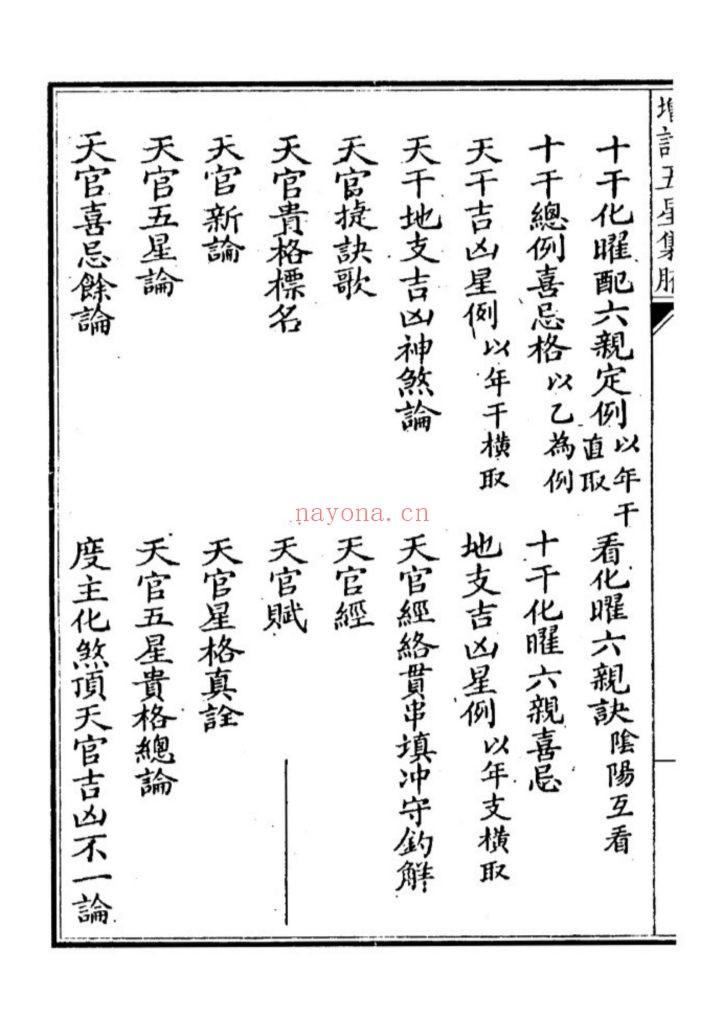 增訂五星集腋
十干化曜配六親定例以年干直取 看化曜六親訣陰陽互看
十干總例喜忌格以乙為例 十干化曜六親喜忌
天干吉凶星例以年干橫取 地支吉凶星例以年支橫取
天干地支吉凶神煞論 天官經絡貫串填冲守釣解
天官捷訣歌 天官經
天官貴格標名 天官賦
天官新論 天官星格真詮
天官五星論 天官五星貴格總論
天官喜忌餘論 度主化煞頂天官吉凶不一論
nayona.cn